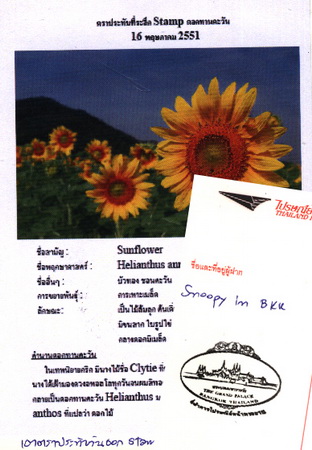 ตราประทับที่ระลึก Stamp ดอกทานตะวัน
16 พฤษภาคม 2551
ชื่อสามัญ : Sunflower
ชื่อพฤกษาศาสตร์ : Helianthus ann
ชื่ออื่นๆ : บัวทอง ชอนตะวัน
การขยายพันธุ์ : การเพาะเมล็ด
ลักษณะ : เป็นไม้ล้มลุก ต้นเตี้
มีขนสาก ใบรูปไข่
กลางดอกมีเมล็ด
ตำนานดอกทานตะวัน
ในเทพนิยายกรีก มีนางไม้ชื่อ Clytie ที่ห
นางได้เฝ้ามองดวงอพอลโลทุกวันจนผมสีทอ
กลายเป็นดอกทานตะวัน Helianthus ม
anthos ที่แปลว่า ดอกไม้
เอาตราประทับกับดอก
ไปรษณีย์
THAILAND
ชื่อและที่อยู่ผู้ฝาก
Snoopy in BKK
THE GRAND PALACE
BANGKOK THAILAND